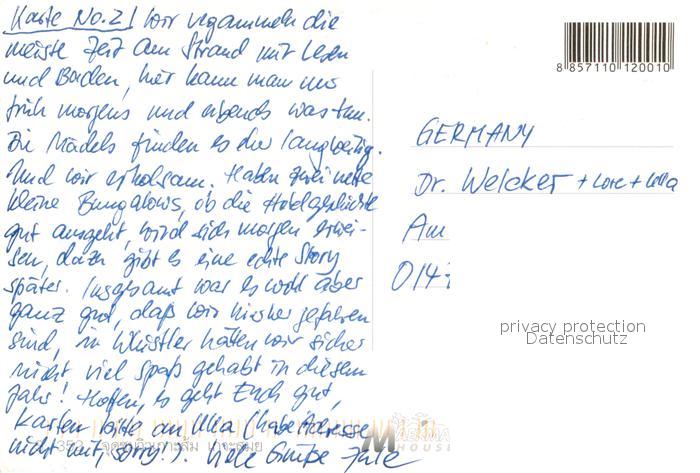 Karte No. 2! Wir vergammeln die
meiste Zeit am Strand mit Lesen
und Baden, hier kann man nur
früh morgens und abends was tun.
Die Mädels finden es eher langweilig.
Und wir erholsam. Haben zwei nette
kleine Bungalows, ob die Hotelgeschichte
gut ausgeht, wird sich morgen erwei-
sen, dazu gibt es eine echte Story
später. Insgesamt war es wohl aber
ganz gut, daß wir hierher gefahren
sind, in Whistler hätten wir sicher
nicht viel Spaß gehabt in diesem
Jahr! Hoffen, es geht Euch gut,
Karten bitte an Ulla (habe Adresse
nicht mit, sorry!). Viele Grüße Jule
8 857110 120010
GERMANY
Dr. Welcker + Lore +
Am
014
privacy protection
Datenschutz